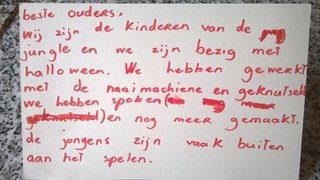 beste ouders,
wij zijn de kinderen van de
jungle en we zijn bezig met
halloween. We hebben gewerkt
met de naaimachiene en geknutseld
we hebben spoken(
)en nog meer gemaakt.
de jongens zijn vaak buiten
aan het spelen.